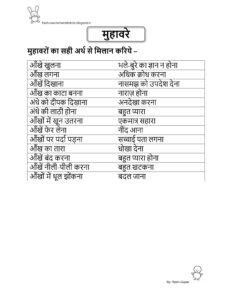 मुहावरे
मुहावरों का सही अर्थ से मिलान करिये –
आँखे खुलना भले-बुरे का ज्ञान न होना
आँख लगना अधिक क्रोध करना
आँखें दिखाना नासमझ को उपदेश देना
आँख का काटा बनना नाराज़ होना
अंधे को दीपक दिखाना अनदेखा करना
अंधे की लाठी होना बहुत प्यारा
आँखों में खून उतरना एकमात्र सहारा
आँखें फेर लेना नींद आना
आँखों पर पर्दा पड़ना सच्चाई पता लगना
आँख का तारा धोखा देना
आँखें बंद करना बहुत प्यारा होना
आँखें नीली-पीली करना बहुत खटकना
आँखों में धूल झोंकना बदल जाना